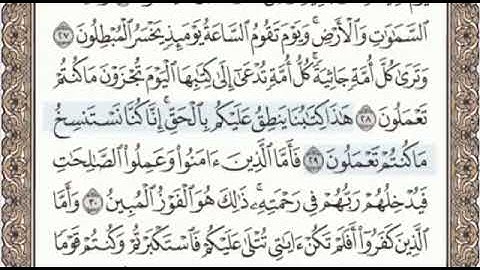 ٱلسَّمَٰوَٰتِ وَٱلْأَرْضِ ۚ وَيَوْمَ تَقُومُ ٱلسَّاعَةُ يَوْمَئِذٍ يَخْسَرُ ٱلْمُبْطِلُونَ ٢٧
وَتَرَىٰ كُلَّ أُمَّةٍ جَاثِيَةً ۚ كُلُّ أُمَّةٍ تُدْعَىٰٓ إِلَىٰ كِتَٰبِهَا ٱلْيَوْمَ تُجْزَوْنَ مَا كُنتُمْ
تَعْمَلُونَ ٢٨ هَٰذَا كِتَٰبُنَا يَنطِقُ عَلَيْكُم بِٱلْحَقِّ ۚ إِنَّا كُنَّا نَسْتَنسِخُ
مَا كُنتُمْ تَعْمَلُونَ ٢٩ فَأَمَّا ٱلَّذِينَ ءَامَنُوا۟ وَعَمِلُوا۟ ٱلصَّٰلِحَٰتِ
فَيُدْخِلُهُمْ رَبُّهُمْ فِى رَحْمَتِهِۦ ۚ ذَٰلِكَ هُوَ ٱلْفَوْزُ ٱلْمُبِينُ ٣٠ وَأَمَّا
ٱلَّذِينَ كَفَرُوٓا۟ أَفَلَمْ تَكُنْ ءَايَٰتِى تُتْلَىٰ عَلَيْكُمْ فَٱسْتَكْبَرْتُمْ وَكُنتُمْ قَوْمًا